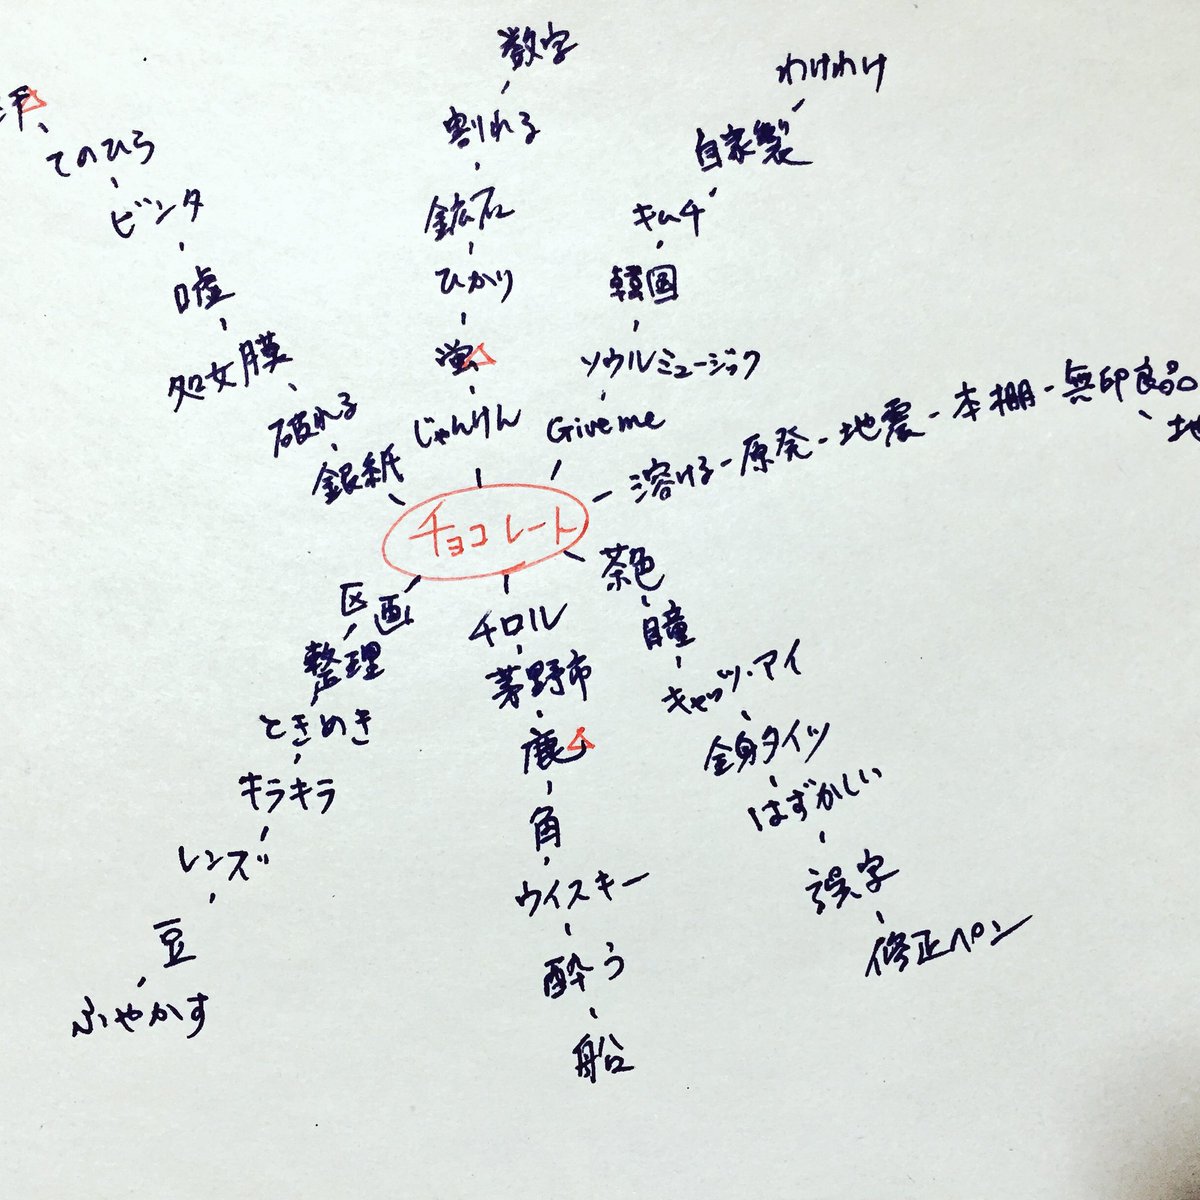 数字
割れる
鉱石
ひかり
蛍
じゃんけん
わけわけ
自家製
キムチ
韓国
ソウルミュージック
Give me
てのひら
ビンタ
嘘
処女膜
破れる
銀紙
チョコレート
溶ける-原発-地震-本棚-無印良品
茶色
瞳
キャッツ・アイ
全身タイツ
はずかしい
誤字
修正ペン
チロル
茅野市
鹿
角
ウイスキー
酔う
船
区画
整理
ときめき
キラキラ
レンズ
豆
ふやかす